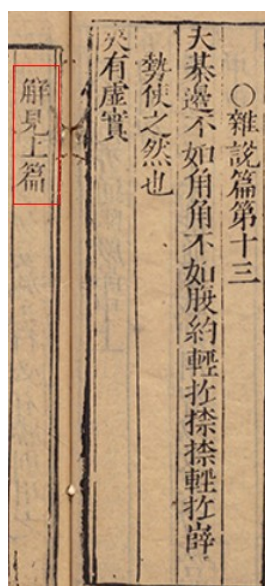 ○雜說篇第十三
夫棊邊不如角角不如腹約輕扵捺捺輕扵嶭
勢使之然也
夾有虛實
觧見上篇